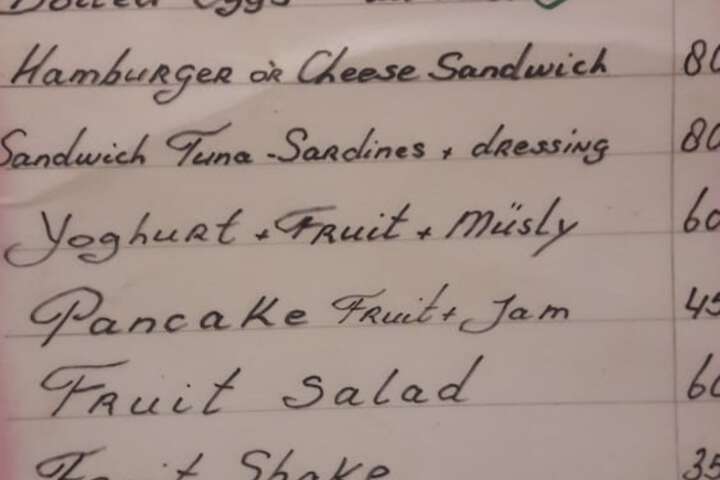 Boiled Eggs
Hamburger or Cheese Sandwich 80
Sandwich Tuna - Sardines + dressing 80
Yoghurt + Fruit + Müsly 60
Pancake Fruit + Jam 45
Fruit Salad 60
Fruit Shake 35